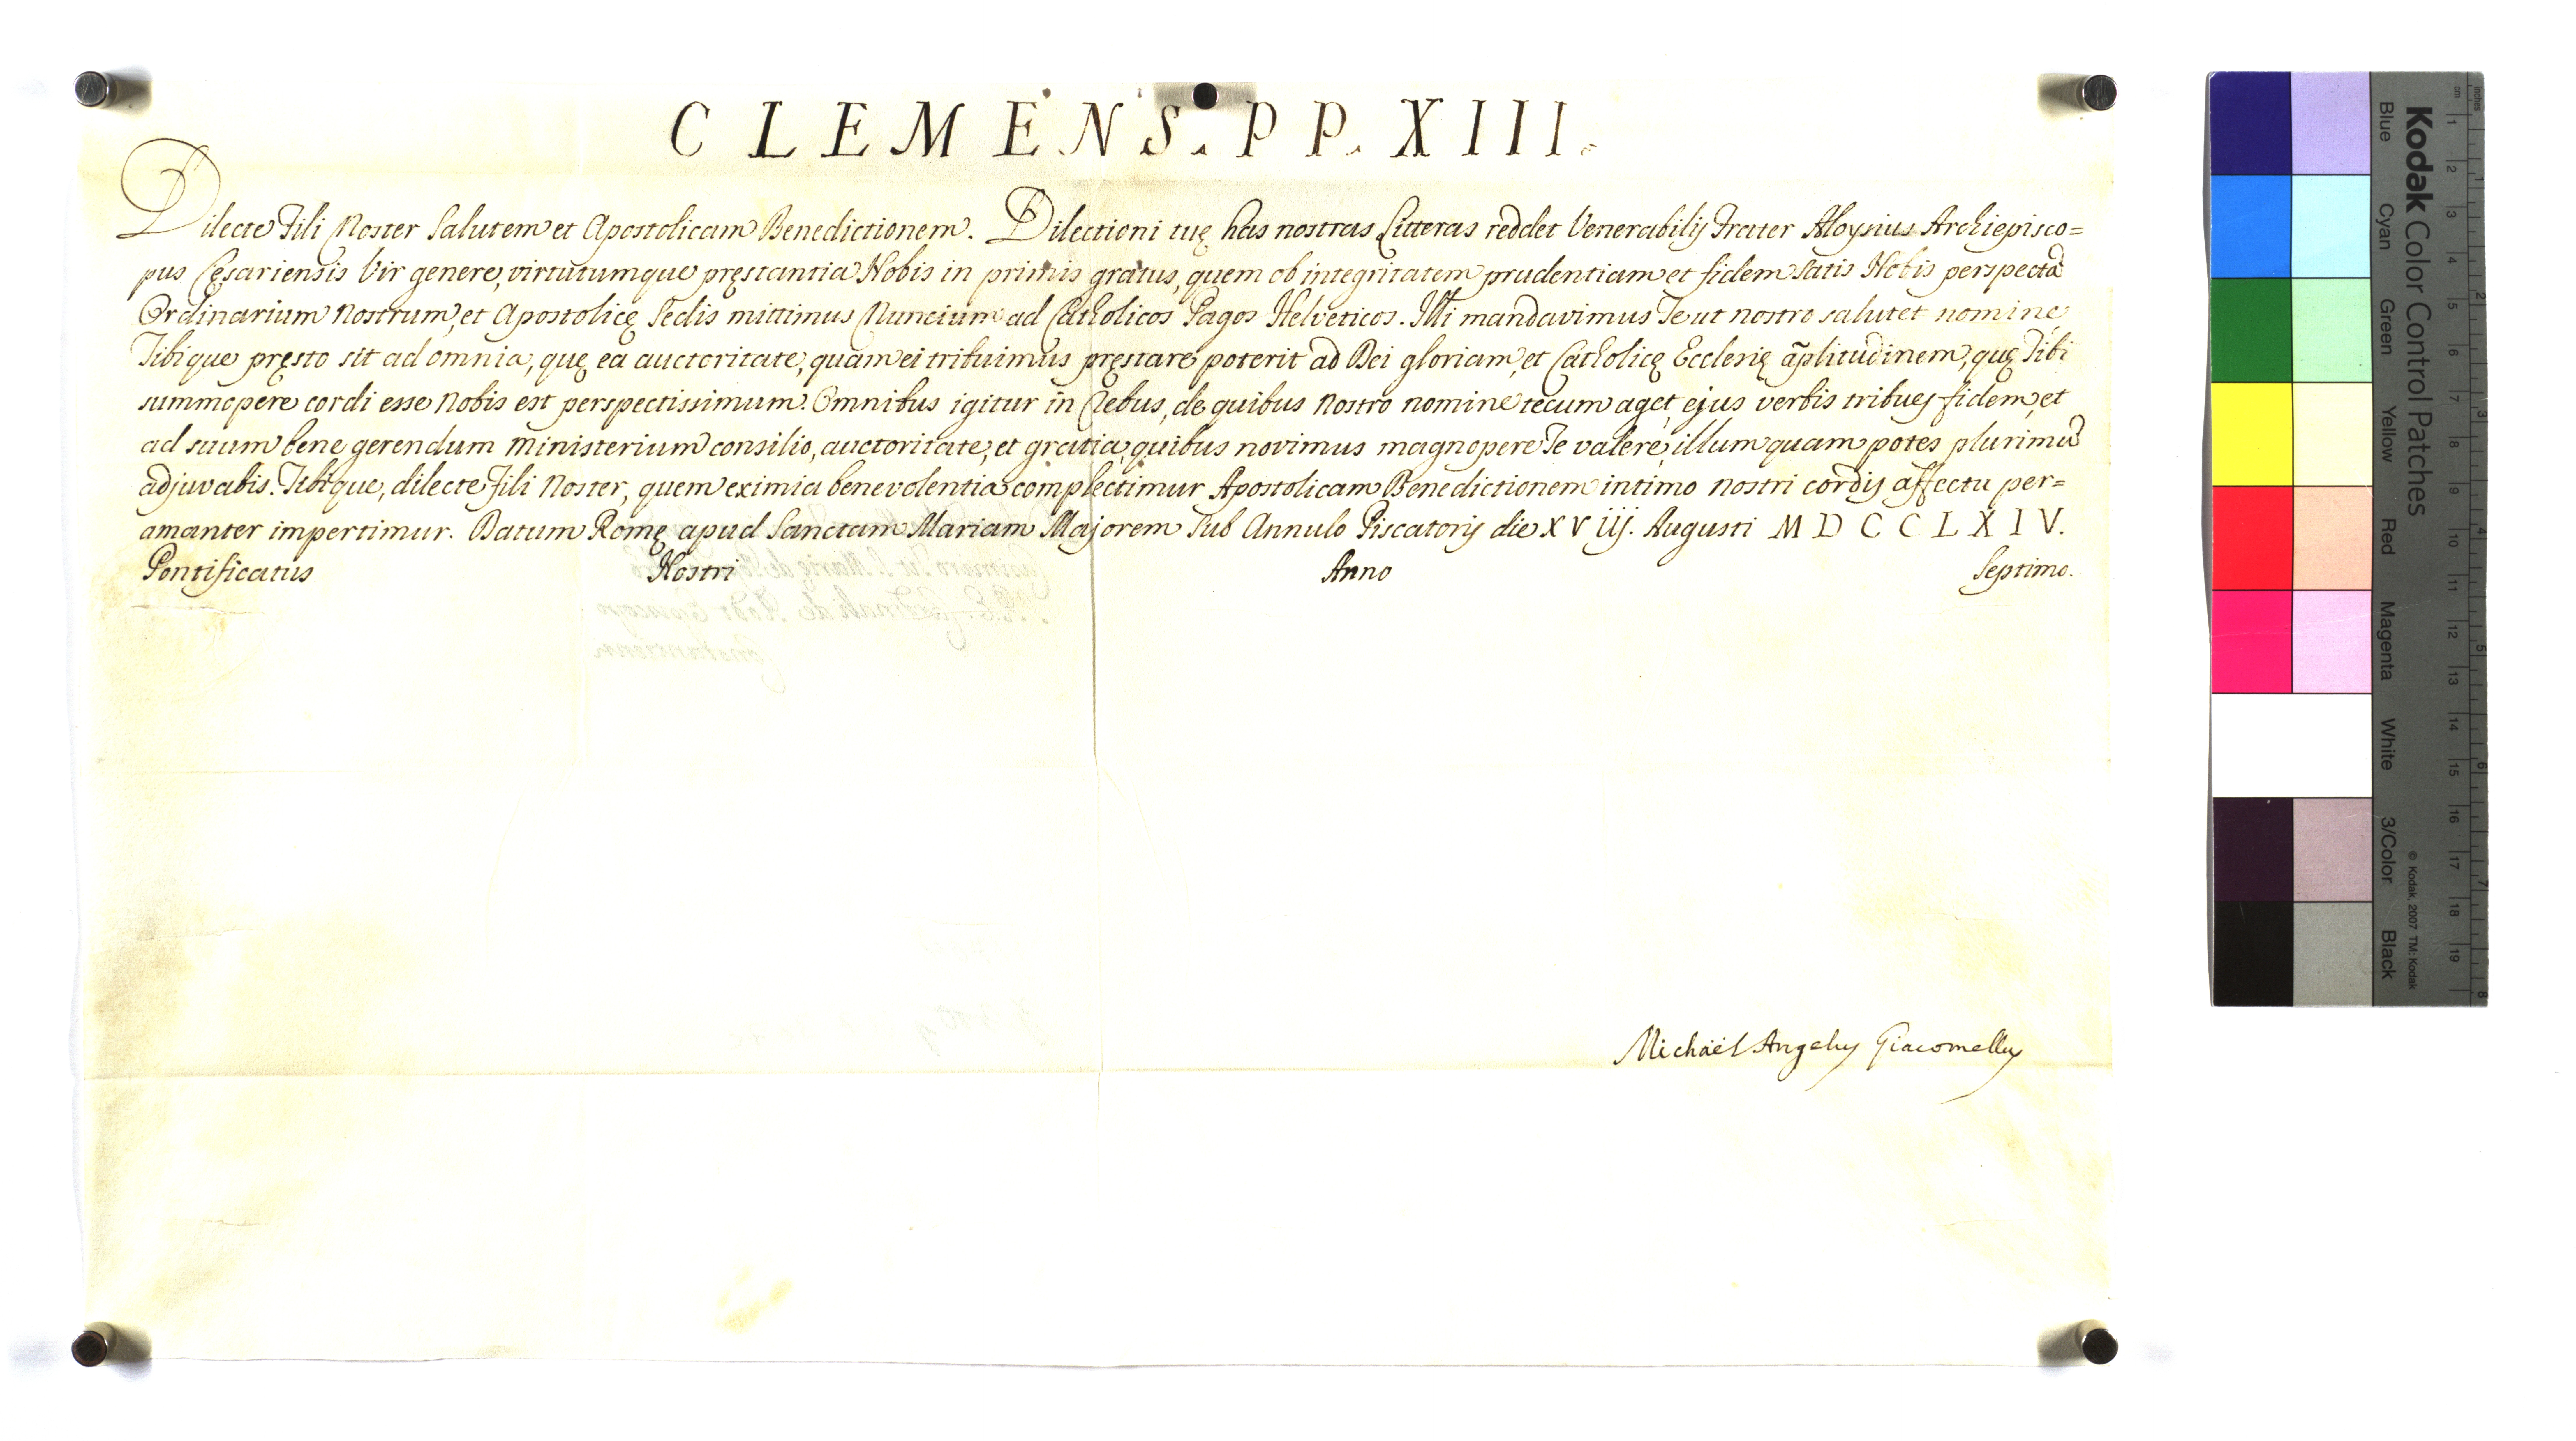 CLEMENS. PP. XIII.
Dilecte Fili Noster Salutem et Apostolicam Benedictionem. Dilectioni tuę has nostras Litteras reddet Venerabilis Frater Aloysius Archiepisco=
pus Cęsariensis Vir genere, virtutumque pręstantia Nobis in primis gratus, quem ob integritatem prudentiam et fidem satis Nobis perspectā
Ordinarium Nostrum, et Apostolicę Sedis mittimus Nuncium ad Catholicos Pagos Helveticos. Illi mandavimus Te ut nostro salutet nomine
Tibique pręsto sit ad omnia, quę ea auctoritate, quam ei tribuimus pręstare poterit ad Dei gloriam, et Catholicę Ecclesię āplitudinem, quę Tibi
summopere cordi esse Nobis est perspectissimum. Omnibus igitur in Rebus, de quibus Nostro nomine tecum aget, ejus verbis tribues fidem, et
ad suum bene gerendum Ministerium consilio, auctoritate, et gratia, quibus novimus magnopere Te valere, illum quam potes plurimū
adjuvabis. Tibique, dilecte Fili Noster, quem eximia benevolentia complectimur Apostolicam Benedictionem intimo nostri cordis affectu per=
amanter impertimur. Datum Romę apud Sanctam Mariam Majorem Sub Annulo Piscatoris die XViij. Augusti MDCCLXIV.
Pontificatus Nostri Anno Septimo.
Michaël Angelus Giacomellus
Kodak Color Control Patches
Blue Cyan Green Yellow Red Magenta White 3/Color Black
© Kodak, 2007 TM: Kodak
cm 1 2 3 4 5 6 7 8 9 10 11 12 13 14 15 16 17 18 19
inches 1 2 3 4 5 6 7 8